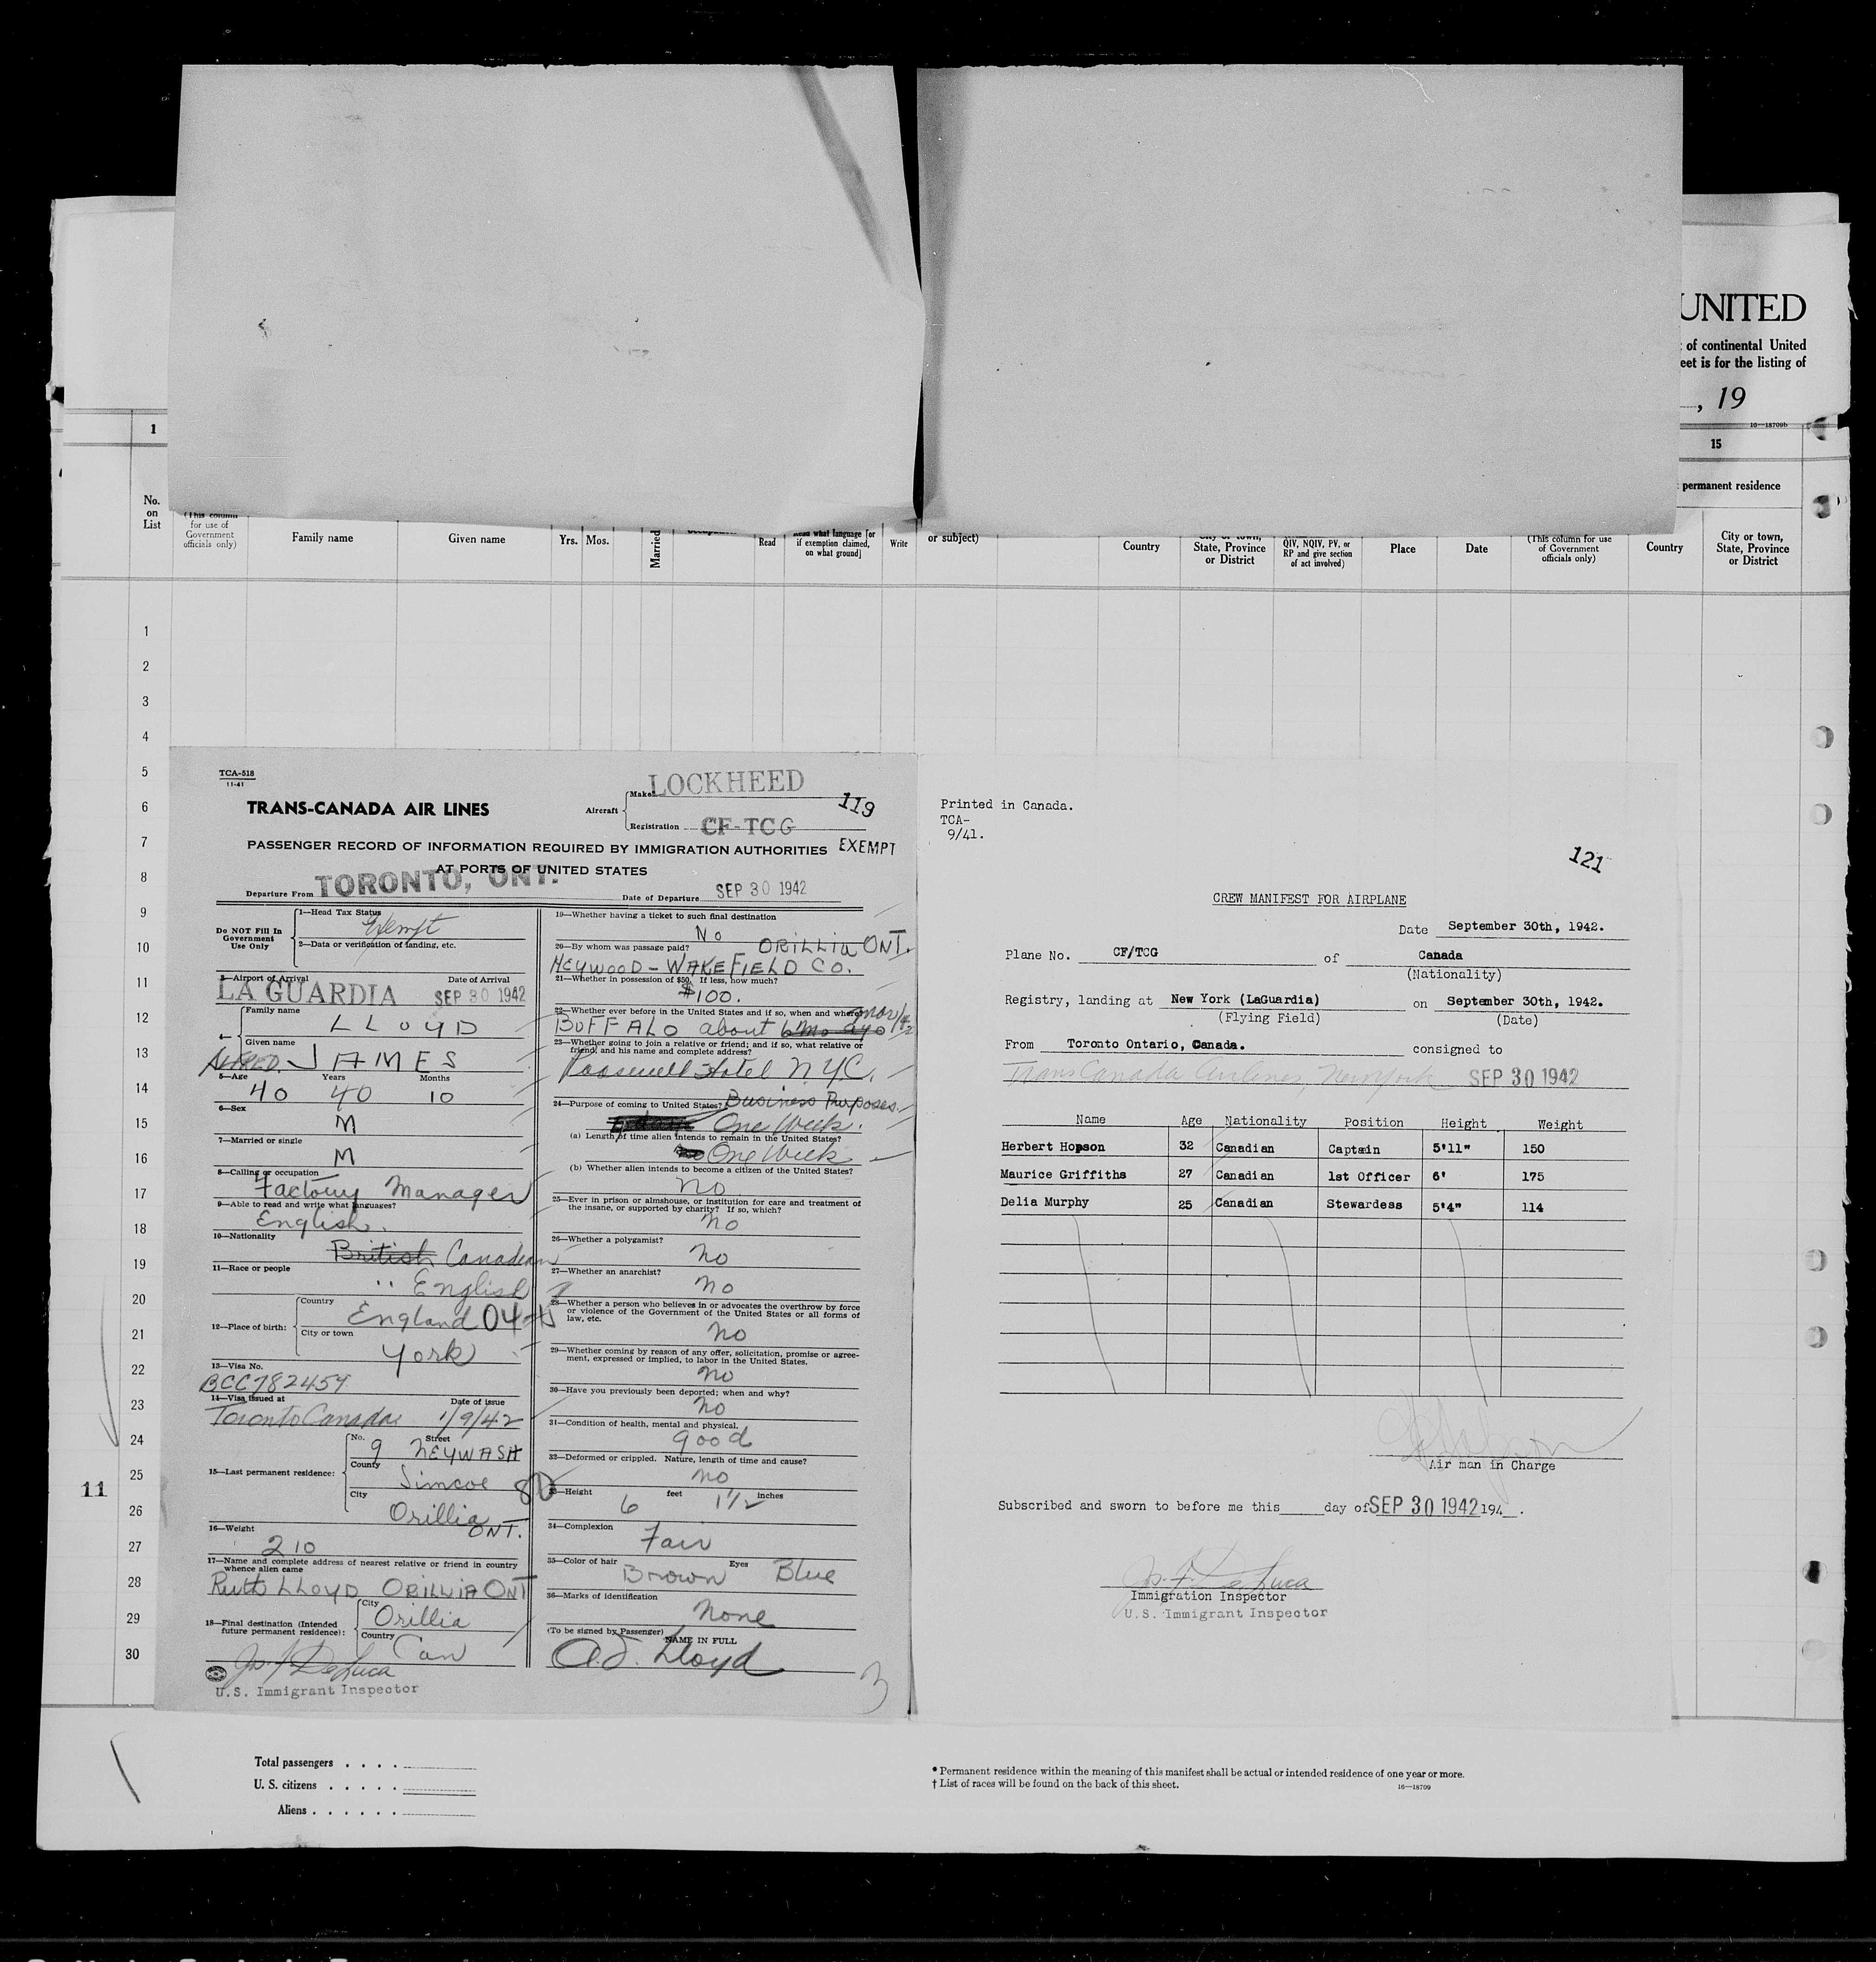 UNITED
of continental United
eet is for the listing of
, 19
16—18709b
1
15
permanent residence
No. on List
(This column for use of Government officials only)
Family name
Given name
Yrs.
Mos.
Married
Read
Read what language [or if exemption claimed, on what ground]
Write
or subject)
Country
City or town, State, Province or District
QIV, NQIV, PV, or RP and give section of act involved)
Place
Date
(This column for use of Government officials only)
Country
City or town, State, Province or District
1
2
3
4
5
6
7
8
9
10
11
12
13
14
15
16
17
18
19
20
21
22
23
24
25
26
27
28
29
30
11
TCA-518
11-41
LOCKHEED
TRANS-CANADA AIR LINES
Aircraft
Make
119
Registration CF-TCG
PASSENGER RECORD OF INFORMATION REQUIRED BY IMMIGRATION AUTHORITIES
EXEMPT
AT PORTS OF UNITED STATES
Departure From TORONTO, ONT.
Date of Departure SEP 30 1942
Do NOT Fill In Government Use Only
1—Head Tax Status
Exempt
2—Data or verification of landing, etc.
3—Airport of Arrival
Date of Arrival
LA GUARDIA
SEP 30 1942
Family name
LLOYD
Given name
ALFRED JAMES
5—Age
Years
Months
40 40 10
6—Sex
M
7—Married or single
M
8—Calling or occupation
Factory Manager
9—Able to read and write what languages?
English.
10—Nationality
British Canadian
11—Race or people
" English
12—Place of birth:
Country
England 04
City or town
York
13—Visa No.
BCC782459
14—Visa issued at
Date of issue
Toronto Canada 1/9/42
15—Last permanent residence:
No.
Street
9 NEYWASH
County
Simcoe
80
City
Orillia ONT.
16—Weight
210
17—Name and complete address of nearest relative or friend in country whence alien came
Ruth LLOYD ORILLIA ONT
18—Final destination (Intended future permanent residence):
City
Orillia
Country
Can
Jos. F. DeLuca
U.S. Immigrant Inspector
19—Whether having a ticket to such final destination
No
20—By whom was passage paid?
ORILLIA ONT.
HEYWOOD-WAKEFIELD CO.
21—Whether in possession of $50. If less, how much?
$100.
22—Whether ever before in the United States and if so, when and where?
BUFFALO about 6 mo ago
23—Whether going to join a relative or friend; and if so, what relative or friend, and his name and complete address?
Roosevelt Hotel N.Y.C.
24—Purpose of coming to United States? Business Purposes.
One Week.
(a) Length of time alien intends to remain in the United States?
One Week
(b) Whether alien intends to become a citizen of the United States?
no
25—Ever in prison or almshouse, or institution for care and treatment of the insane, or supported by charity? If so, which?
no
26—Whether a polygamist?
no
27—Whether an anarchist?
no
28—Whether a person who believes in or advocates the overthrow by force or violence of the Government of the United States or all forms of law, etc.
no
29—Whether coming by reason of any offer, solicitation, promise or agreement, expressed or implied, to labor in the United States.
no
30—Have you previously been deported; when and why?
no
31—Condition of health, mental and physical.
good
32—Deformed or crippled. Nature, length of time and cause?
no
33—Height
6 feet 1 1/2 inches
34—Complexion
Fair
35—Color of hair
Eyes
Brown Blue
36—Marks of identification
None
(To be signed by Passenger) NAME IN FULL
A.J. Lloyd
3
Printed in Canada.
TCA-
9/41.
121
CREW MANIFEST FOR AIRPLANE
Date September 30th, 1942.
Plane No. CF/TCG of Canada
(Nationality)
Registry, landing at New York (LaGuardia) on September 30th, 1942.
(Flying Field)
(Date)
From Toronto Ontario, Canada. consigned to
Trans Canada Airlines, New York SEP 30 1942
Name Age Nationality Position Height Weight
Herbert Hopson 32 Canadian Captain 5'11" 150
Maurice Griffiths 27 Canadian 1st Officer 6' 175
Delia Murphy 25 Canadian Stewardess 5'4" 114
Air man in Charge
Subscribed and sworn to before me this day of SEP 30 1942 194 .
Jos. F. DeLuca
Immigration Inspector
U.S. Immigrant Inspector
Total passengers . . . .
U. S. citizens . . . . .
Aliens . . . . . .
* Permanent residence within the meaning of this manifest shall be actual or intended residence of one year or more.
† List of races will be found on the back of this sheet.
16—18709